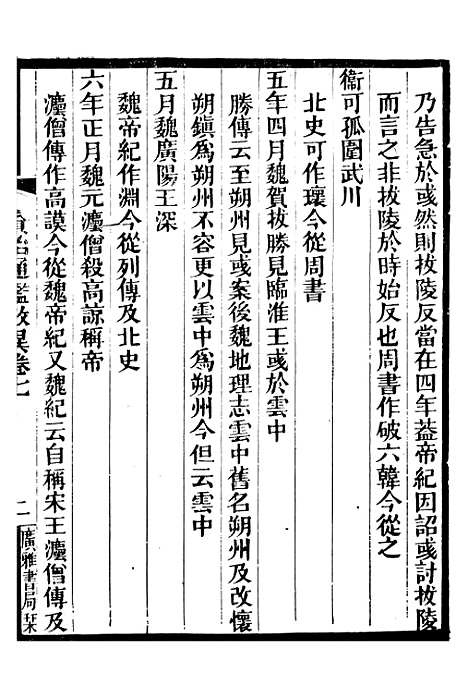 乃告急於彧然則拔陵反當在四年葢帝紀因詔彧討拔陵
而言之非拔陵於時始反也周書作破六韓今從之
衞可孤圍武川
北史可作瓌今從周書
五年四月魏賀拔勝見臨淮王彧於雲中
勝傳云至朔州見彧案後魏地理志雲中舊名朔州及改懷
朔鎮爲朔州不容更以雲中爲朔州今但云雲中
五月魏廣陽王深
魏帝紀作淵今從列傳及北史
六年正月魏元灋僧殺高諒稱帝
灋僧傳作高謨今從魏帝紀又魏紀云自稱宋王灋僧傳及
資治通鑑攷異卷七
二
廣雅書局栞